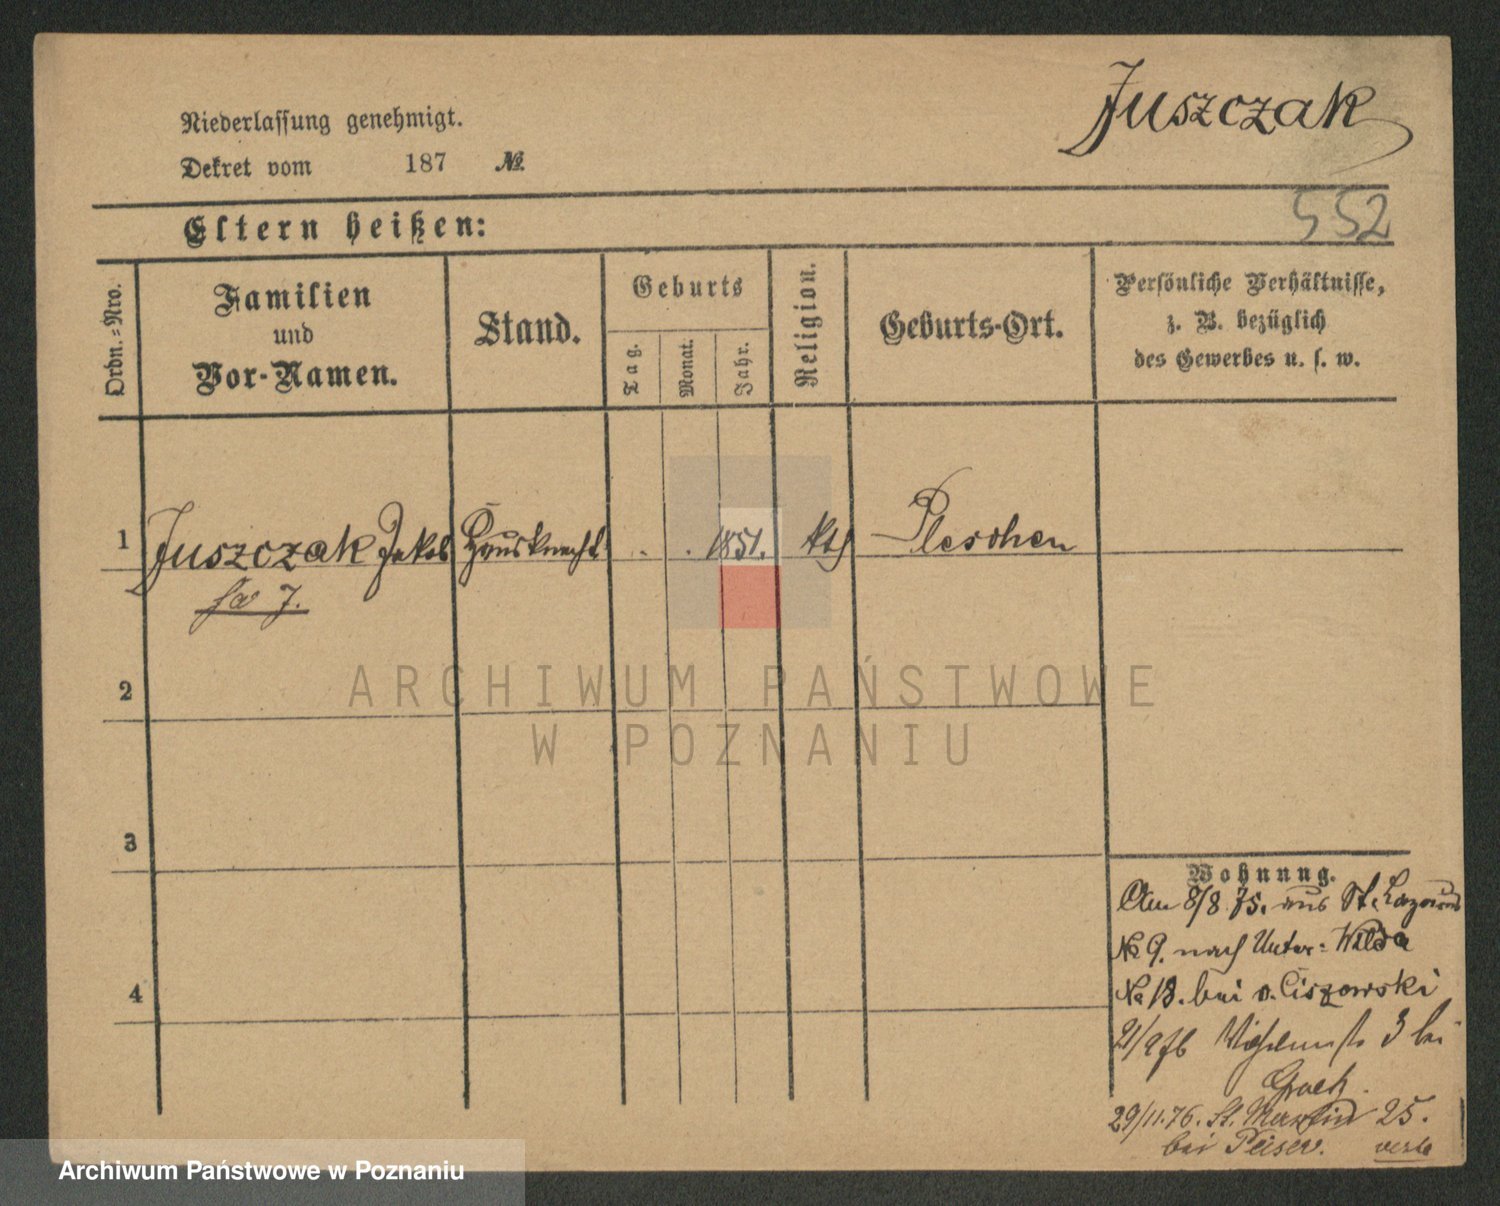 Juszczak
Niederlassung genehmigt.
Dekret vom 187 №
Eltern heißen:
552
Ordn.-Nro.
Familien
und
Vor-Namen.
Stand.
Geburts
Tag.
Monat.
Jahr.
Religion.
Geburts-Ort.
Persönliche Verhältnisse,
z. B. bezüglich
des Gewerbes u. s. w.
1 Juszczak Jakob Hausknecht . . 1851. kth Pleschen
2
3
4
Wohnung.
Am 8/8 75. aus St. Lazarus
No 9. nach Unter-Wilda
No 13. bei v. Ciszowski
21/9 76 3 bei
29/11.76. St. Martin 25.
bei Peiser. verte
ARCHIWUM PAŃSTWOWE
W POZNANIU
Archiwum Państwowe w Poznaniu